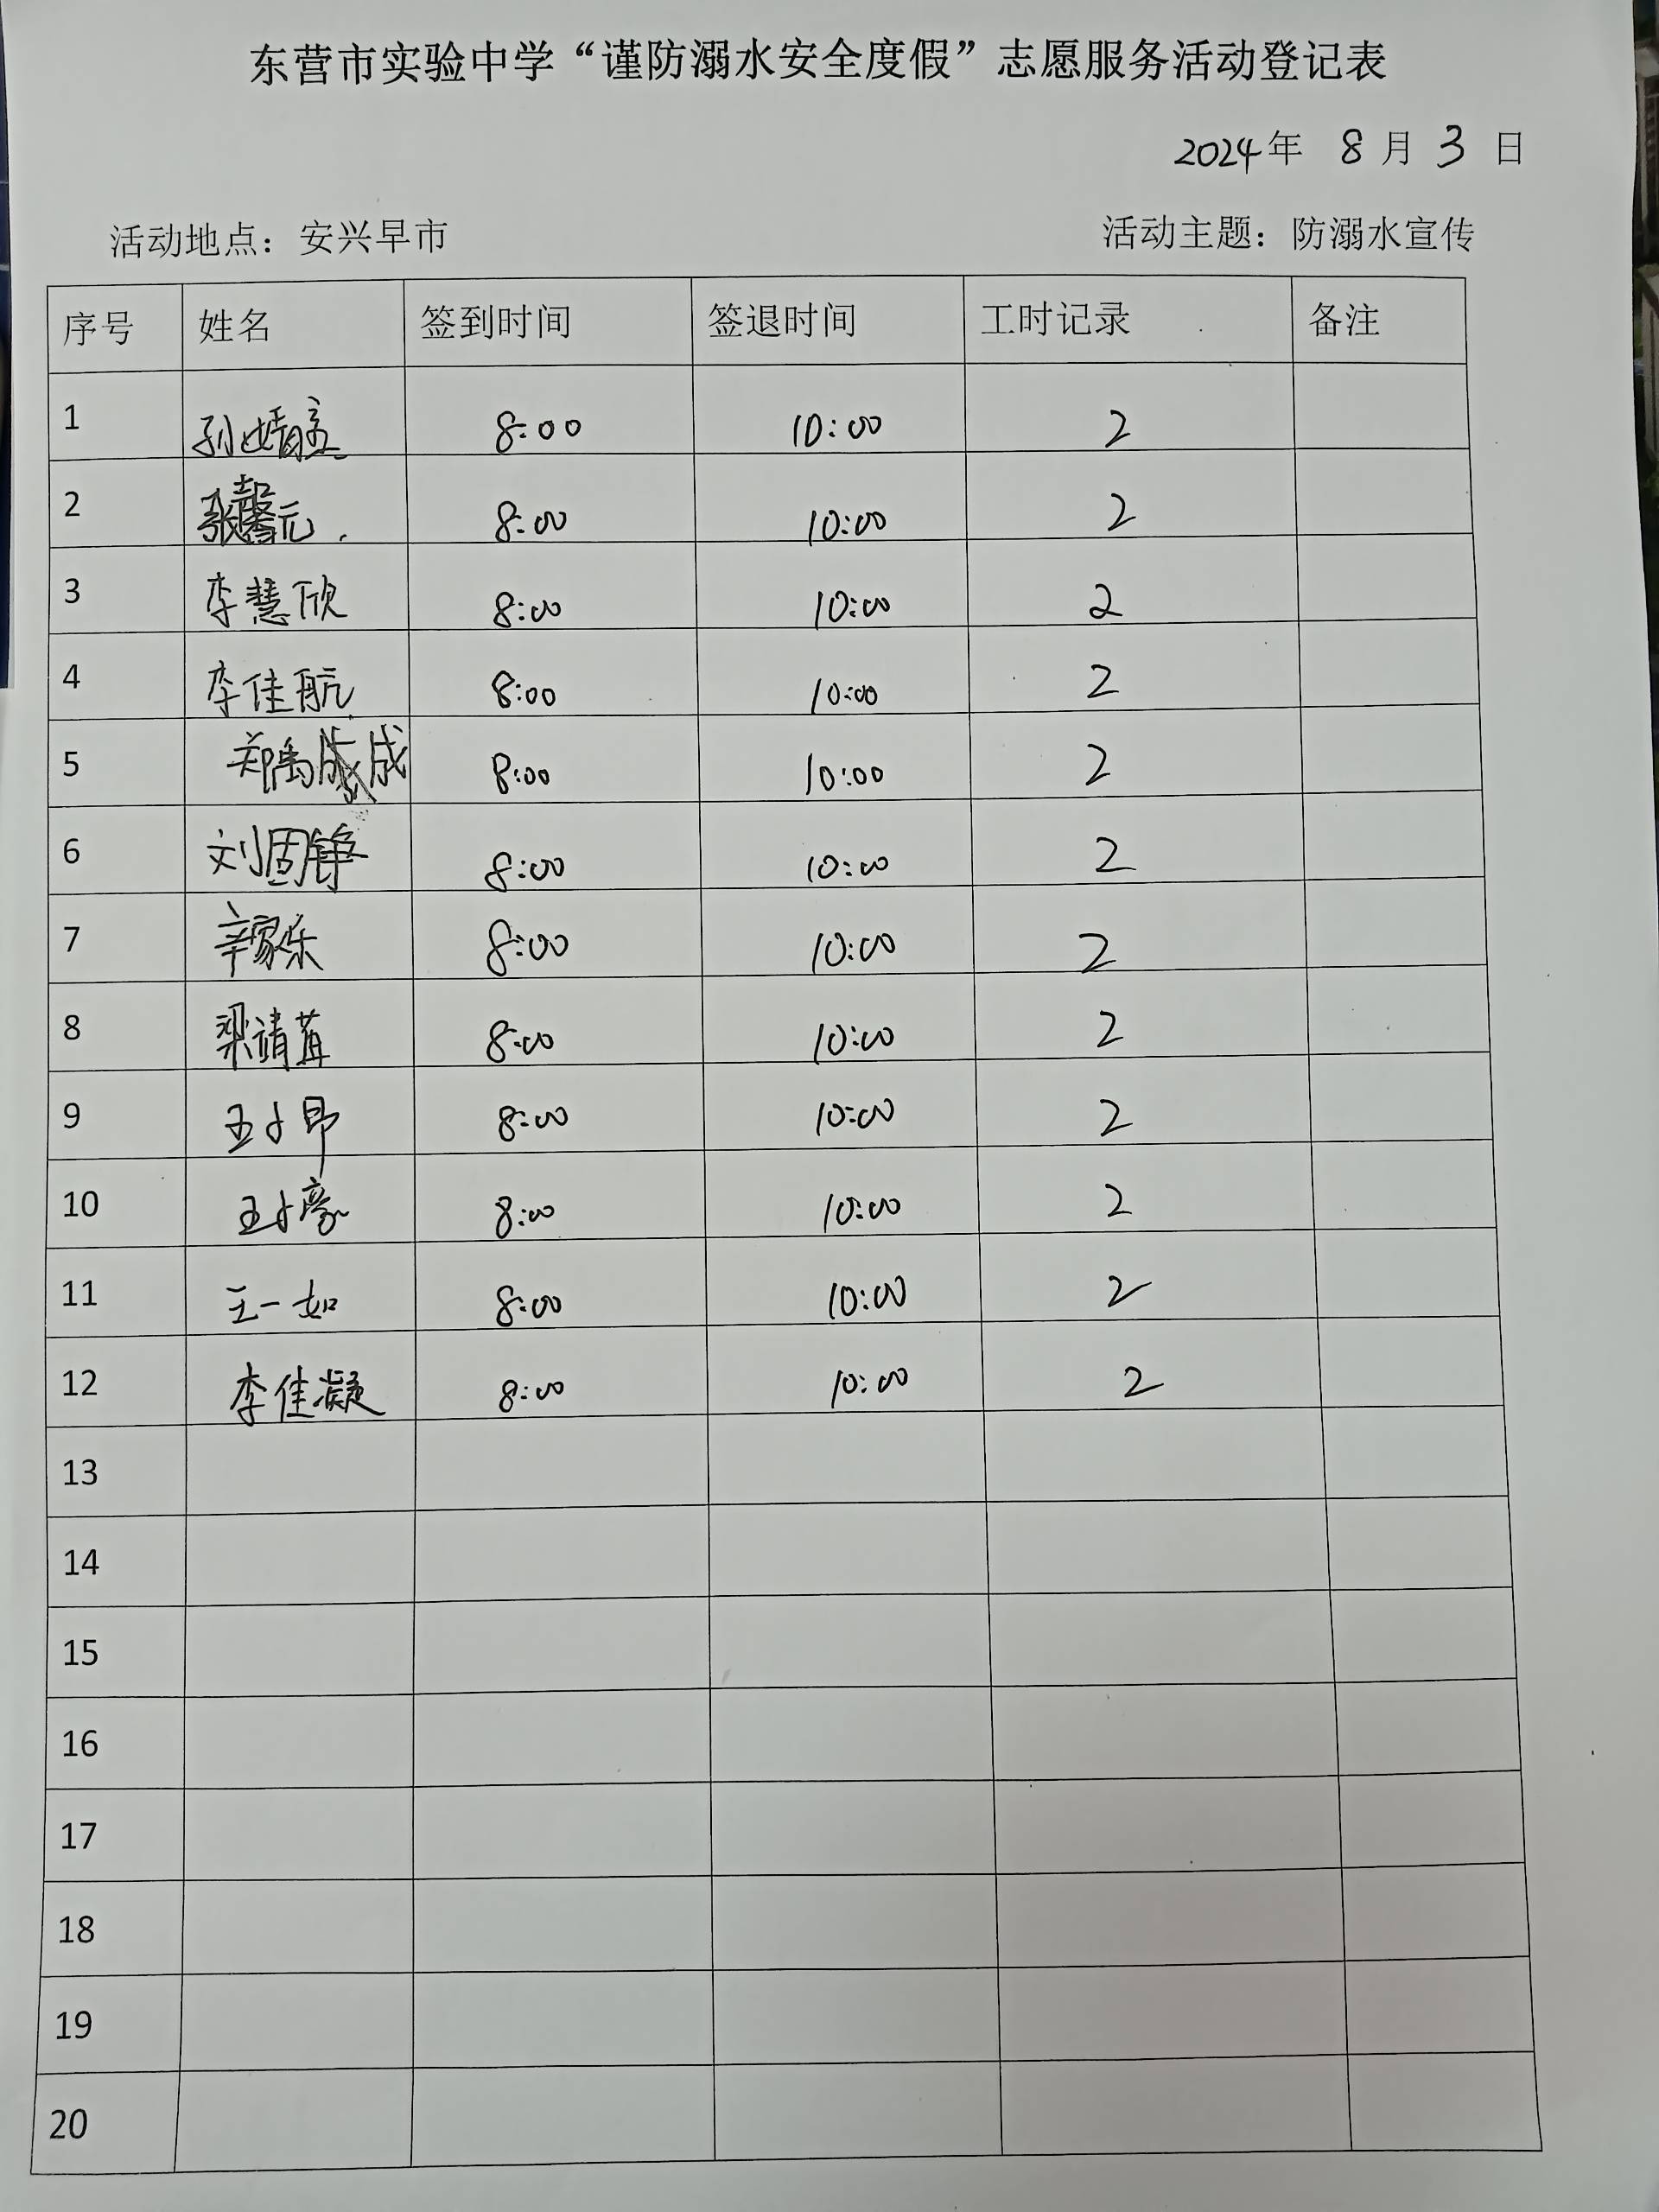 东营市实验中学“谨防溺水安全度假”志愿服务活动登记表
2024年 8 月 3 日
活动地点：安兴早市 活动主题：防溺水宣传
序号 姓名 签到时间 签退时间 工时记录 备注
1 孙婧 8:00 10:00 2
2 张馨元 8:00 10:00 2
3 李慧欣 8:00 10:00 2
4 李佳航 8:00 10:00 2
5 郑禹成 8:00 10:00 2
6 刘固铮 8:00 10:00 2
7 辛家乐 8:00 10:00 2
8 梁靖苒 8:00 10:00 2
9 王子昂 8:00 10:00 2
10 王子豪 8:00 10:00 2
11 王一如 8:00 10:00 2
12 李佳凝 8:00 10:00 2
13
14
15
16
17
18
19
20